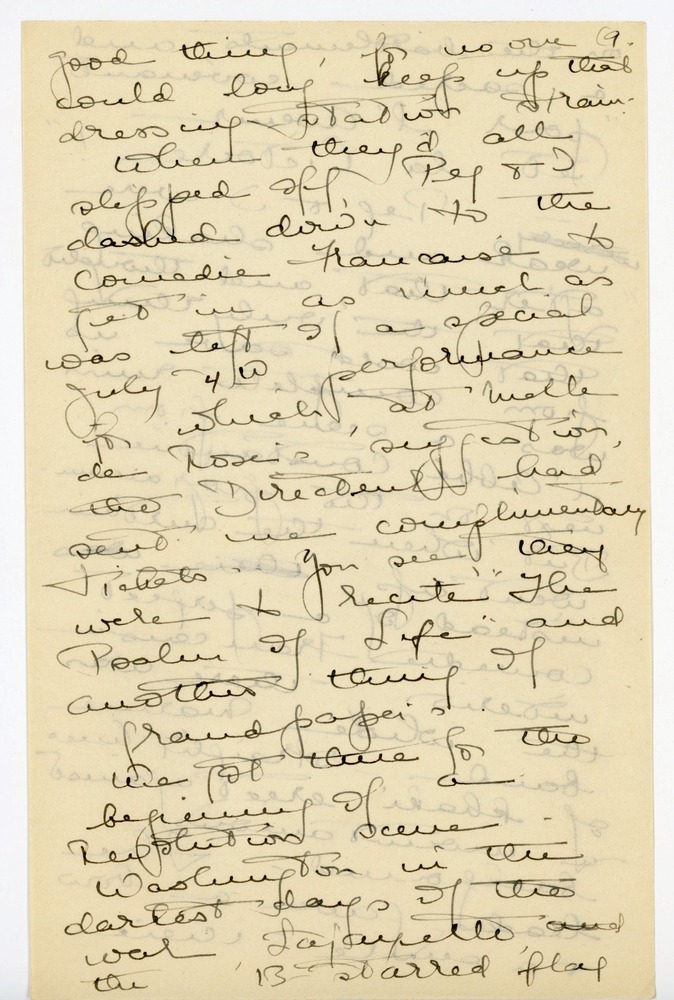 good thing, for no one (9.
could long keep up that
dressing-station strain.
When they'd all
stepped off, Peg & I
dashed down to the
Comedie Francaise to
get in as much as
was left of a special
July 4th performance
for which, at Melle
de Rose's suggestion,
the Director had
sent me complimentary
tickets. You see they
were to recite "The
Psalm of Life" and
another thing of
grandpapa's.
We got there for the
beginning of a
Revolution scene -
Washington in the
darkest days of the
war, Lafayette, and
the 13-starred flag